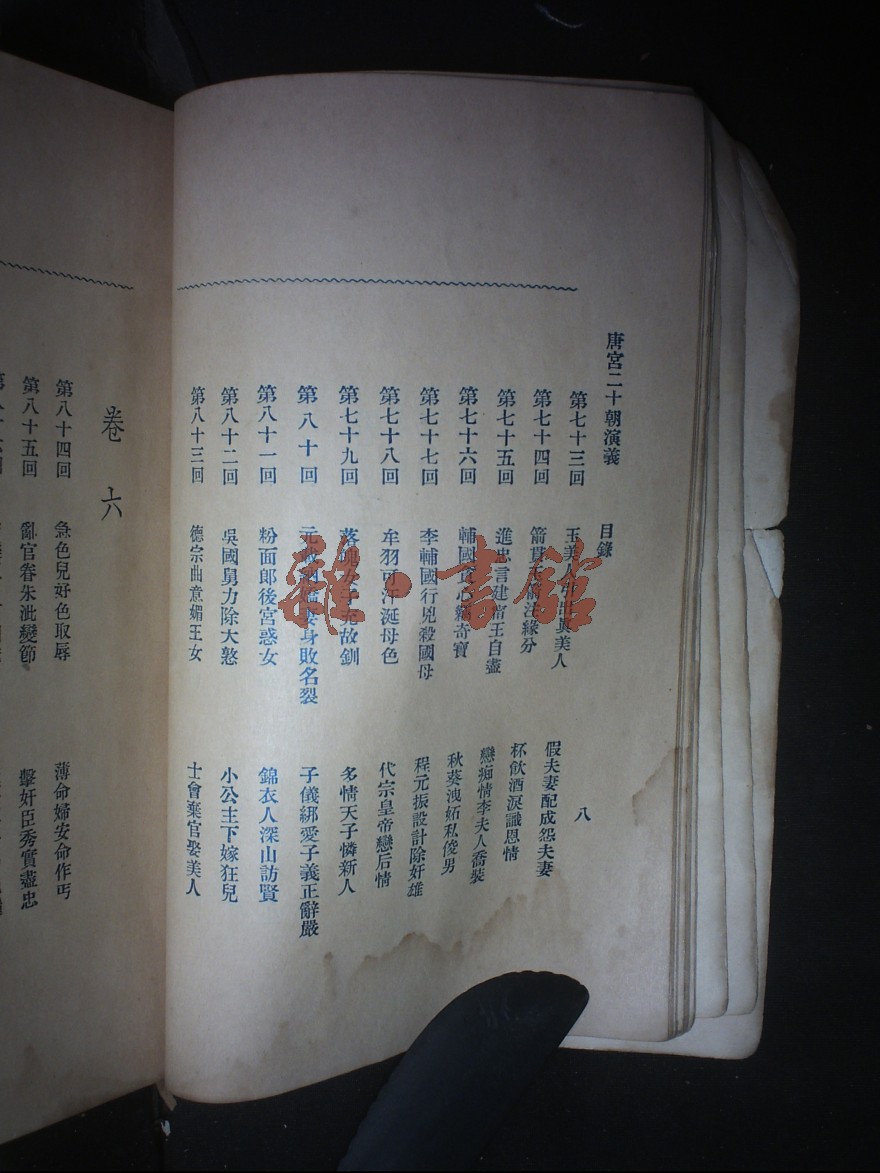 唐宮二十朝演義 目錄 八
第七十三回 玉美人 眞美人 假夫妻配成怨夫妻
第七十四回 箭貫 注緣分 杯飲酒淚識恩情
第七十五回 進忠言建甯王自盡 戀痴情李夫人喬裝
第七十六回 輔國 心竊奇寶 秋葵洩妬私俊男
第七十七回 李輔國行兇殺國母 程元振設計除奸雄
第七十八回 牟羽可汗誕母色 代宗皇帝戀后情
第七十九回 落 故釧 多情天子憐新人
第八十回 元 妻身敗名裂 子儀綁愛子義正辭嚴
第八十一回 粉面郎後宮惑女 錦衣人深山訪賢
第八十二回 吳國舅力除大憝 小公主下嫁狂兒
第八十三回 德宗曲意媚王女 士會棄官娶美人
卷六
第八十四回 急色兒好色取辱 薄命婦安命作丐
第八十五回 亂官眷朱泚變節 擊奸臣秀實盡忠
雜·書館